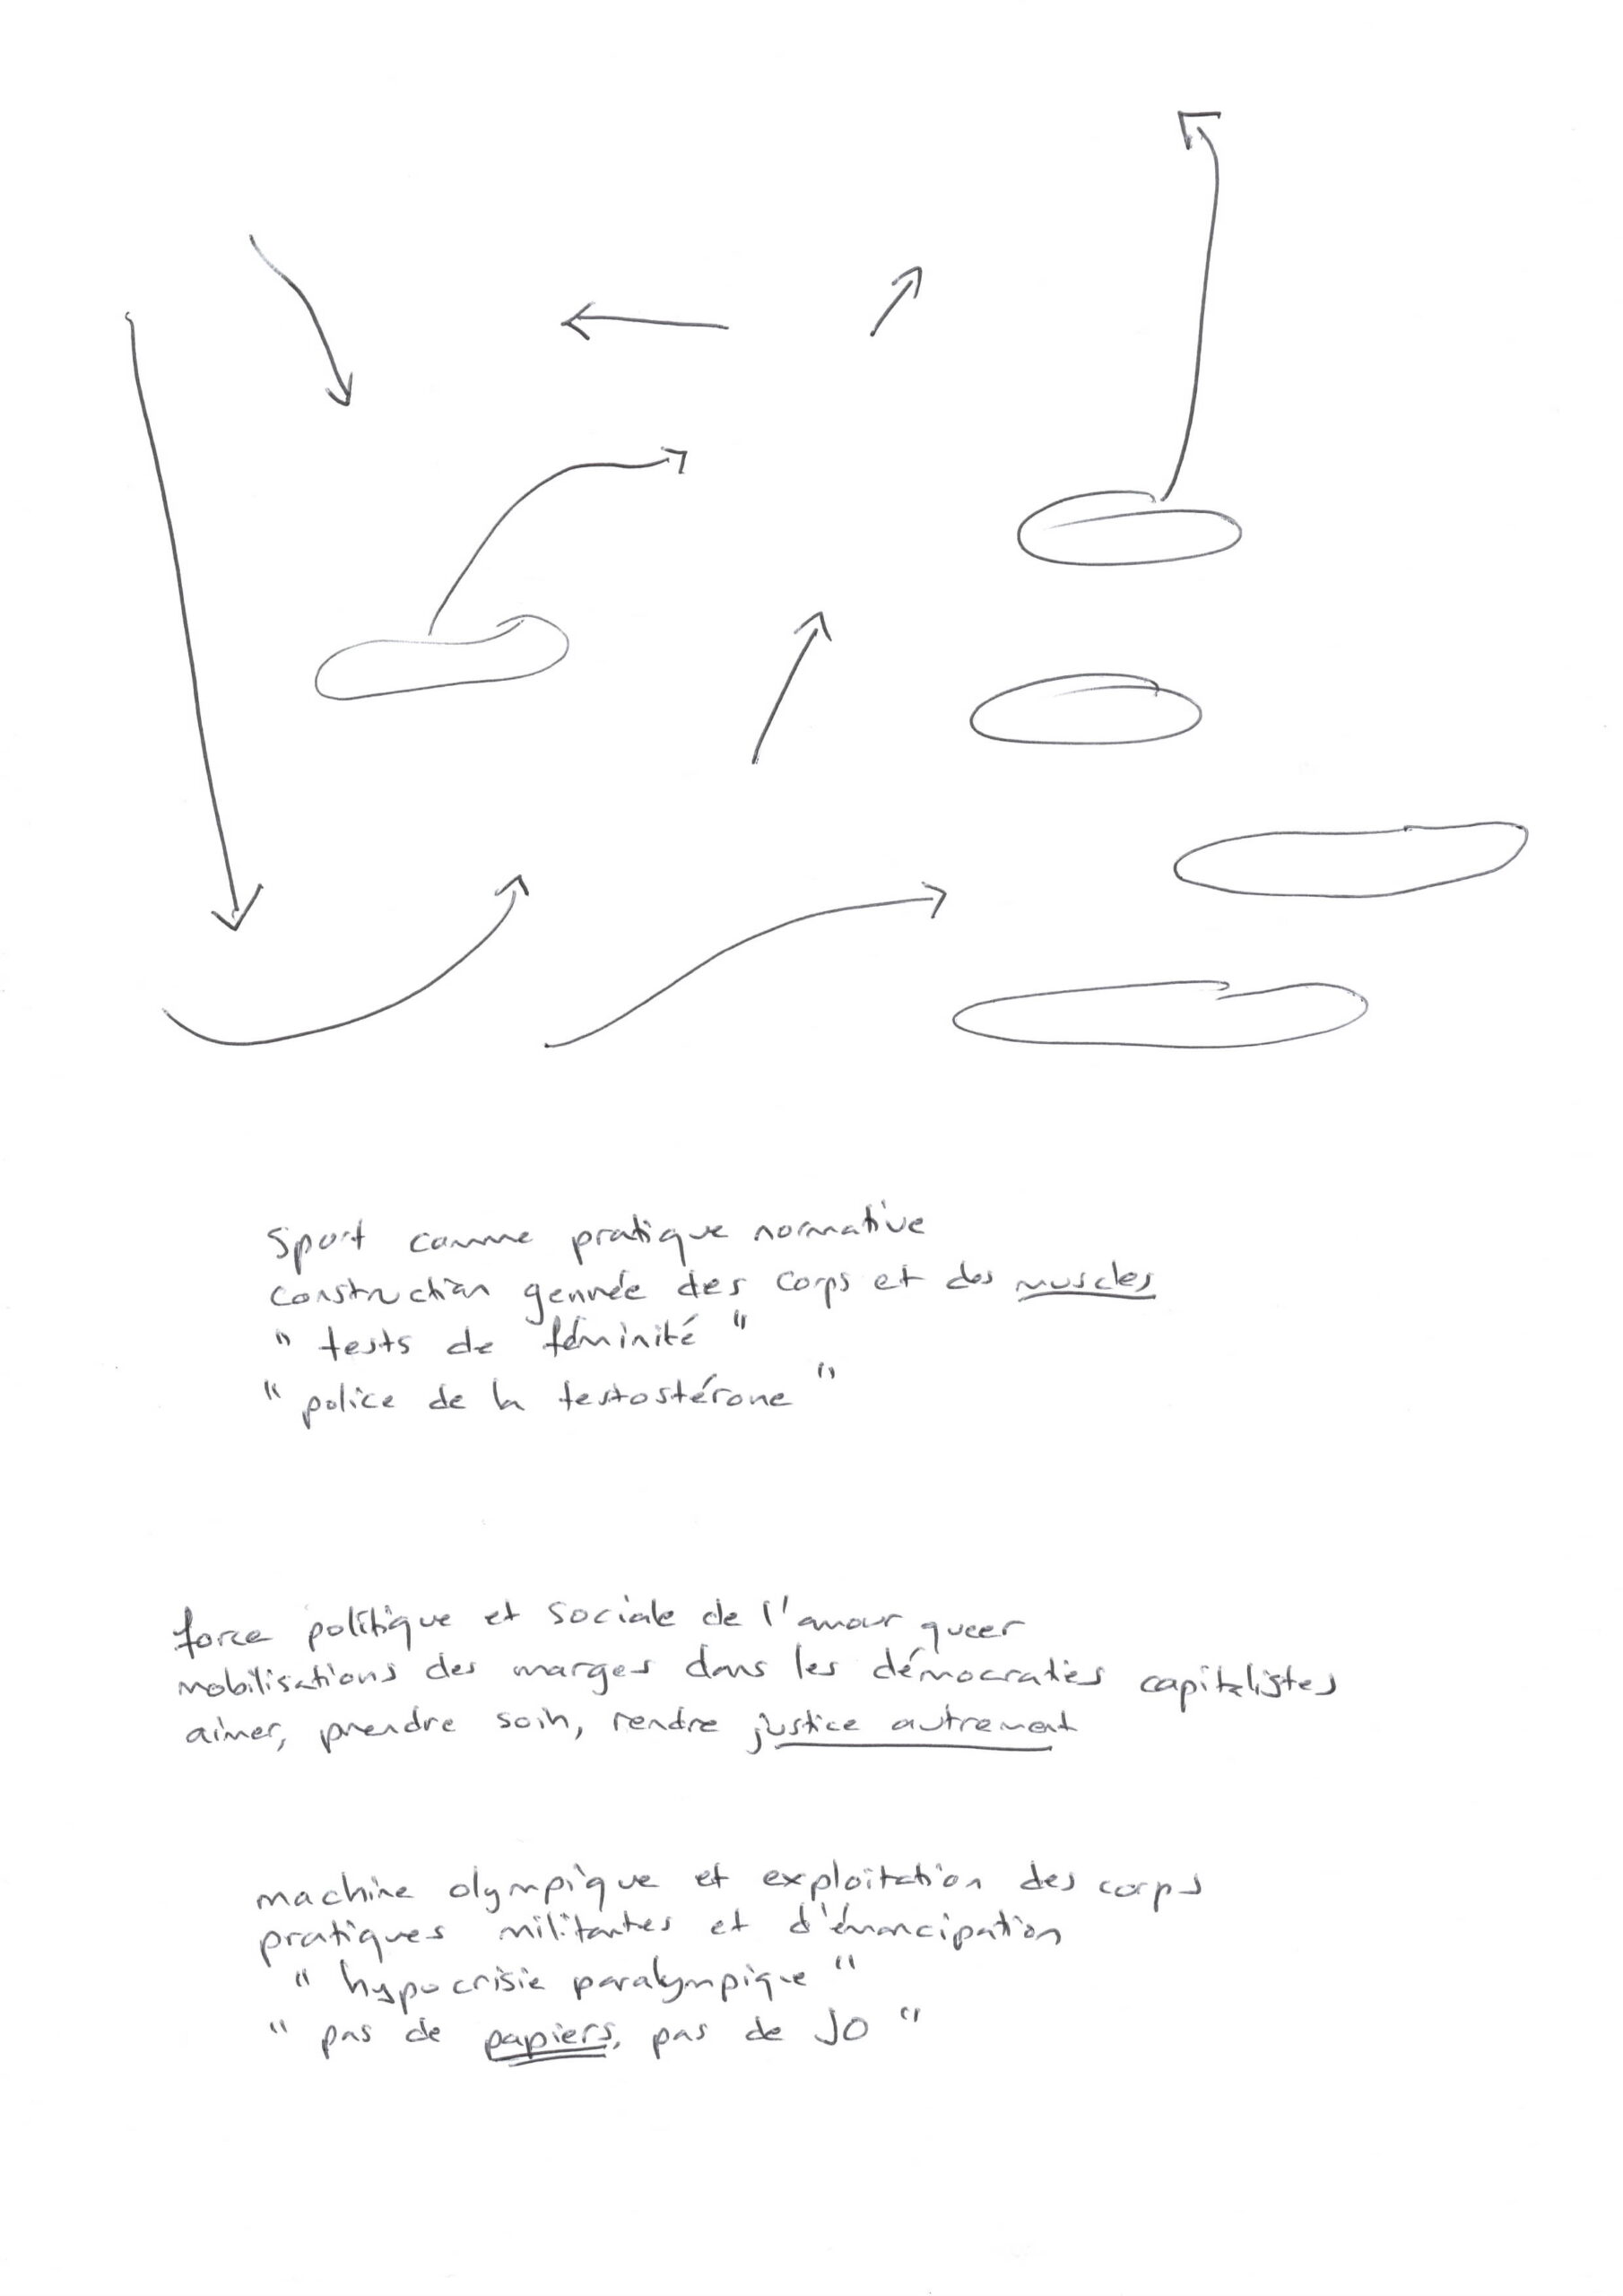 Sport comme pratique normative
construction genrée des corps et des muscles
" tests de féminité "
" police de la testostérone "
force politique et sociale de l'amour queer
mobilisations des marges dans les démocraties capitalistes
aimer, prendre soin, rendre justice autrement
machine olympique et exploitation des corps
pratiques militantes et d'émancipation
" hypocrisie paralympique "
" pas de papiers, pas de JO "